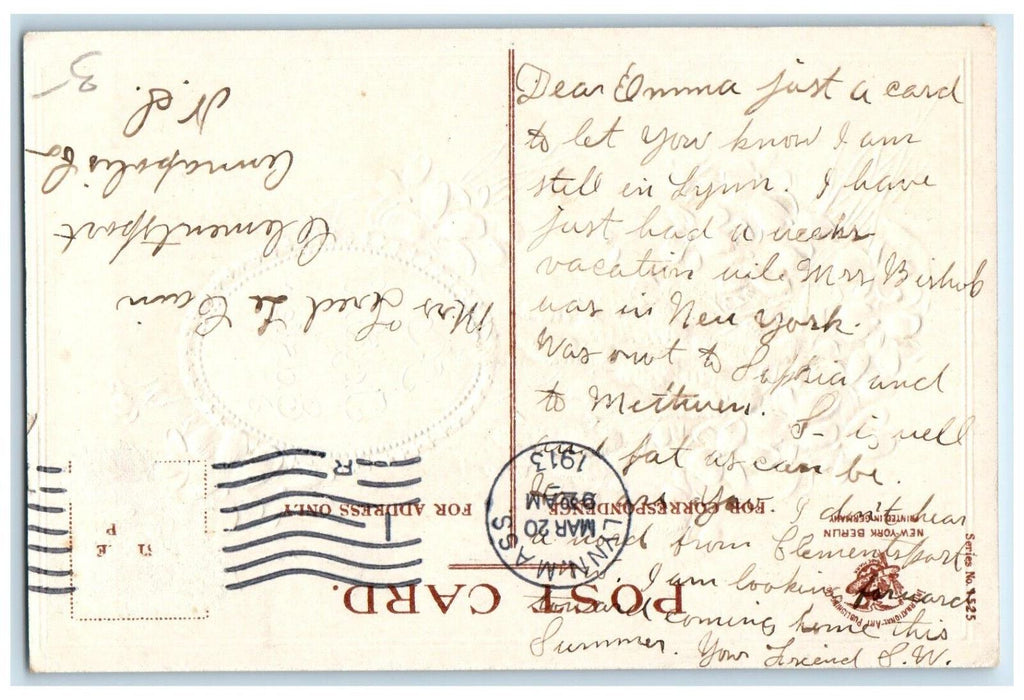 Dear Emma just a card
to let you know I am
still in Lynn. I have
just had a weeks
vacation wile Mrs Bishob
was in New York.
Was out to Sophia and
to Methuen. S- is well
and fat as can be.
How are you. I don't hear
a word from Clementsport
I am looking forward
toward coming home this
Summer. Your Friend S.W.
Mrs Fred Le Cain
Clementsport
Annapolis Co
N.S.
3
POST CARD.
FOR ADDRESS ONLY
FOR CORRESPONDENCE
NEW YORK BERLIN
PRINTED IN GERMANY
INTERNATIONAL ART PUBLISHING
Series No. 1525
LYNN MASS
MAR 20
9 AM
1913
R